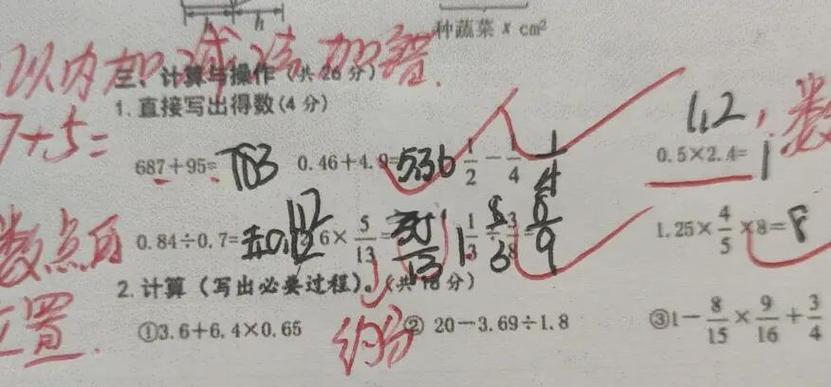 h h
种蔬菜 x cm²
以内加减法加错.
三、计算与操作(共 26 分)
1. 直接写出得数(4 分)
7+5=
687+95=783 0.46+4.9=5.36 1/2-1/4 1/4 0.5×2.4= 1.2
数点的
位置.
0.84÷0.7= 6×5/13= 1 1/3÷3/8= 8/9 1.25×4/5×8=8
2. 计算(写出必要过程)。(共18分)
①3.6+6.4×0.65 约分 ② 20-3.69÷1.8 ③1-8/15×9/16+3/4